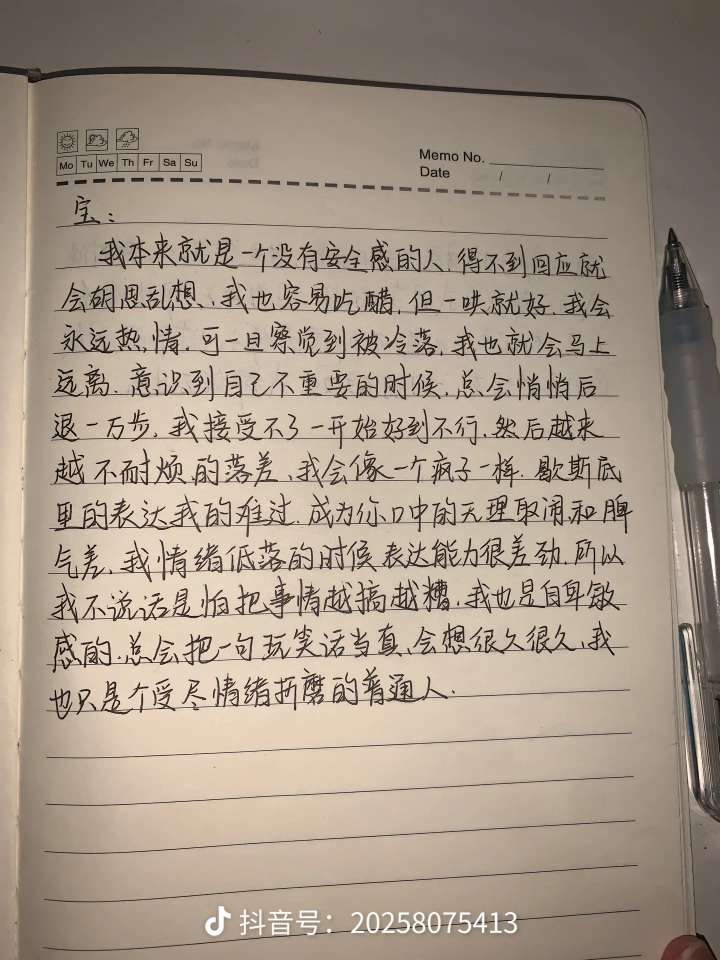 Mo Tu We Th Fr Sa Su
Memo No.
Date / /
宝:
我本来就是一个没有安全感的人,得不到回应就
会胡思乱想,我也容易吃醋,但一哄就好.我会
永远热情.可一旦察觉到被冷落,我也就会马上
远离.意识到自己不重要的时候,总会悄悄后
退一万步,我接受不了一开始好到不行,然后越来
越不耐烦的落差,我会像一个疯子一样.歇斯底
里的表达我的难过.成为你口中的无理取闹和脾
气差,我情绪低落的时候表达能力很差劲.所以
我不说话是怕把事情越搞越糟,我也是自卑敏
感的.总会把一句玩笑话当真,会想很久很久,我
也只是个受尽情绪折磨的普通人.
抖音号：20258075413